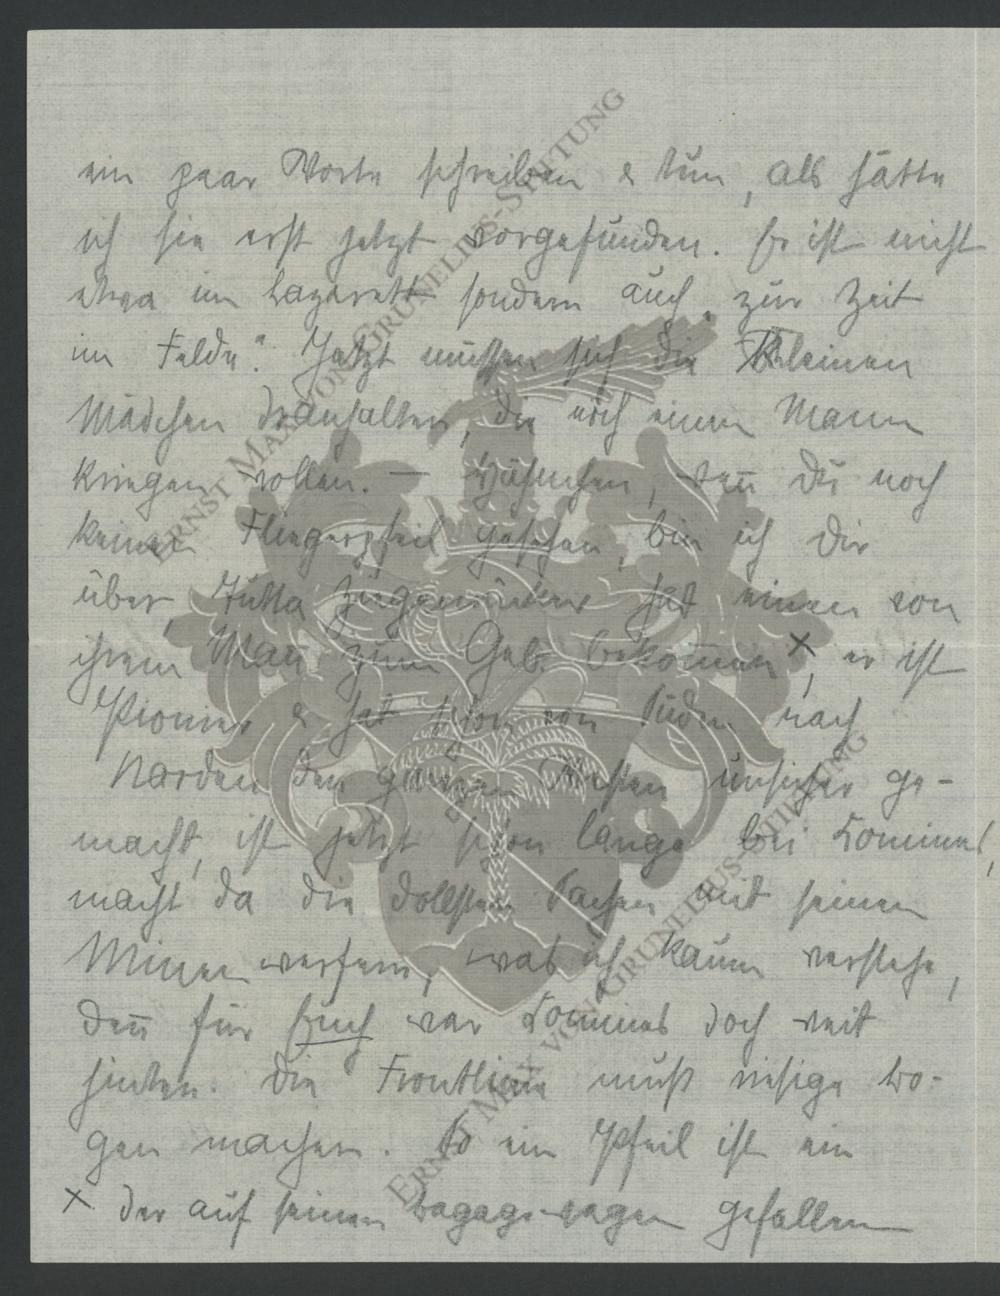 ein paar Worte schreiben & tun, als hätte
ich sie erst jetzt vorgefunden. Er ist nicht
etwa im Lazarett sondern auch „zur Zeit
im Felde“. Jetzt müssen sich die Kleinen
Mädchen dranhalten, die noch einen Mann
kriegen wollen. — Hähnchen, wen̄ Du noch
keinen Fliegerpfeil gesehen, bin ich Dir
über. Jutta hat einen von
ihrem Man̄ zum Geb. bekom̄en ×, er ist
Pionier & hat schon von Süden nach
Norden den ganzen Westen unsicher ge-
macht, ist jetzt schon lange bei Comines,
macht da die dollsten Sachen mit seinen
Minen werfern, was ich kaum verstehe,
den̄ für Euch war Comines doch weit
hinten. Die Frontlinie muß riesige Bo-
gen machen. So ein Pfeil ist ein
× der auf seinen Bagagewagen gefallen
ERNST MAX VON GRUNELIUS-STIFTUNG
ERNST MAX VON GRUNELIUS-STIFTUNG